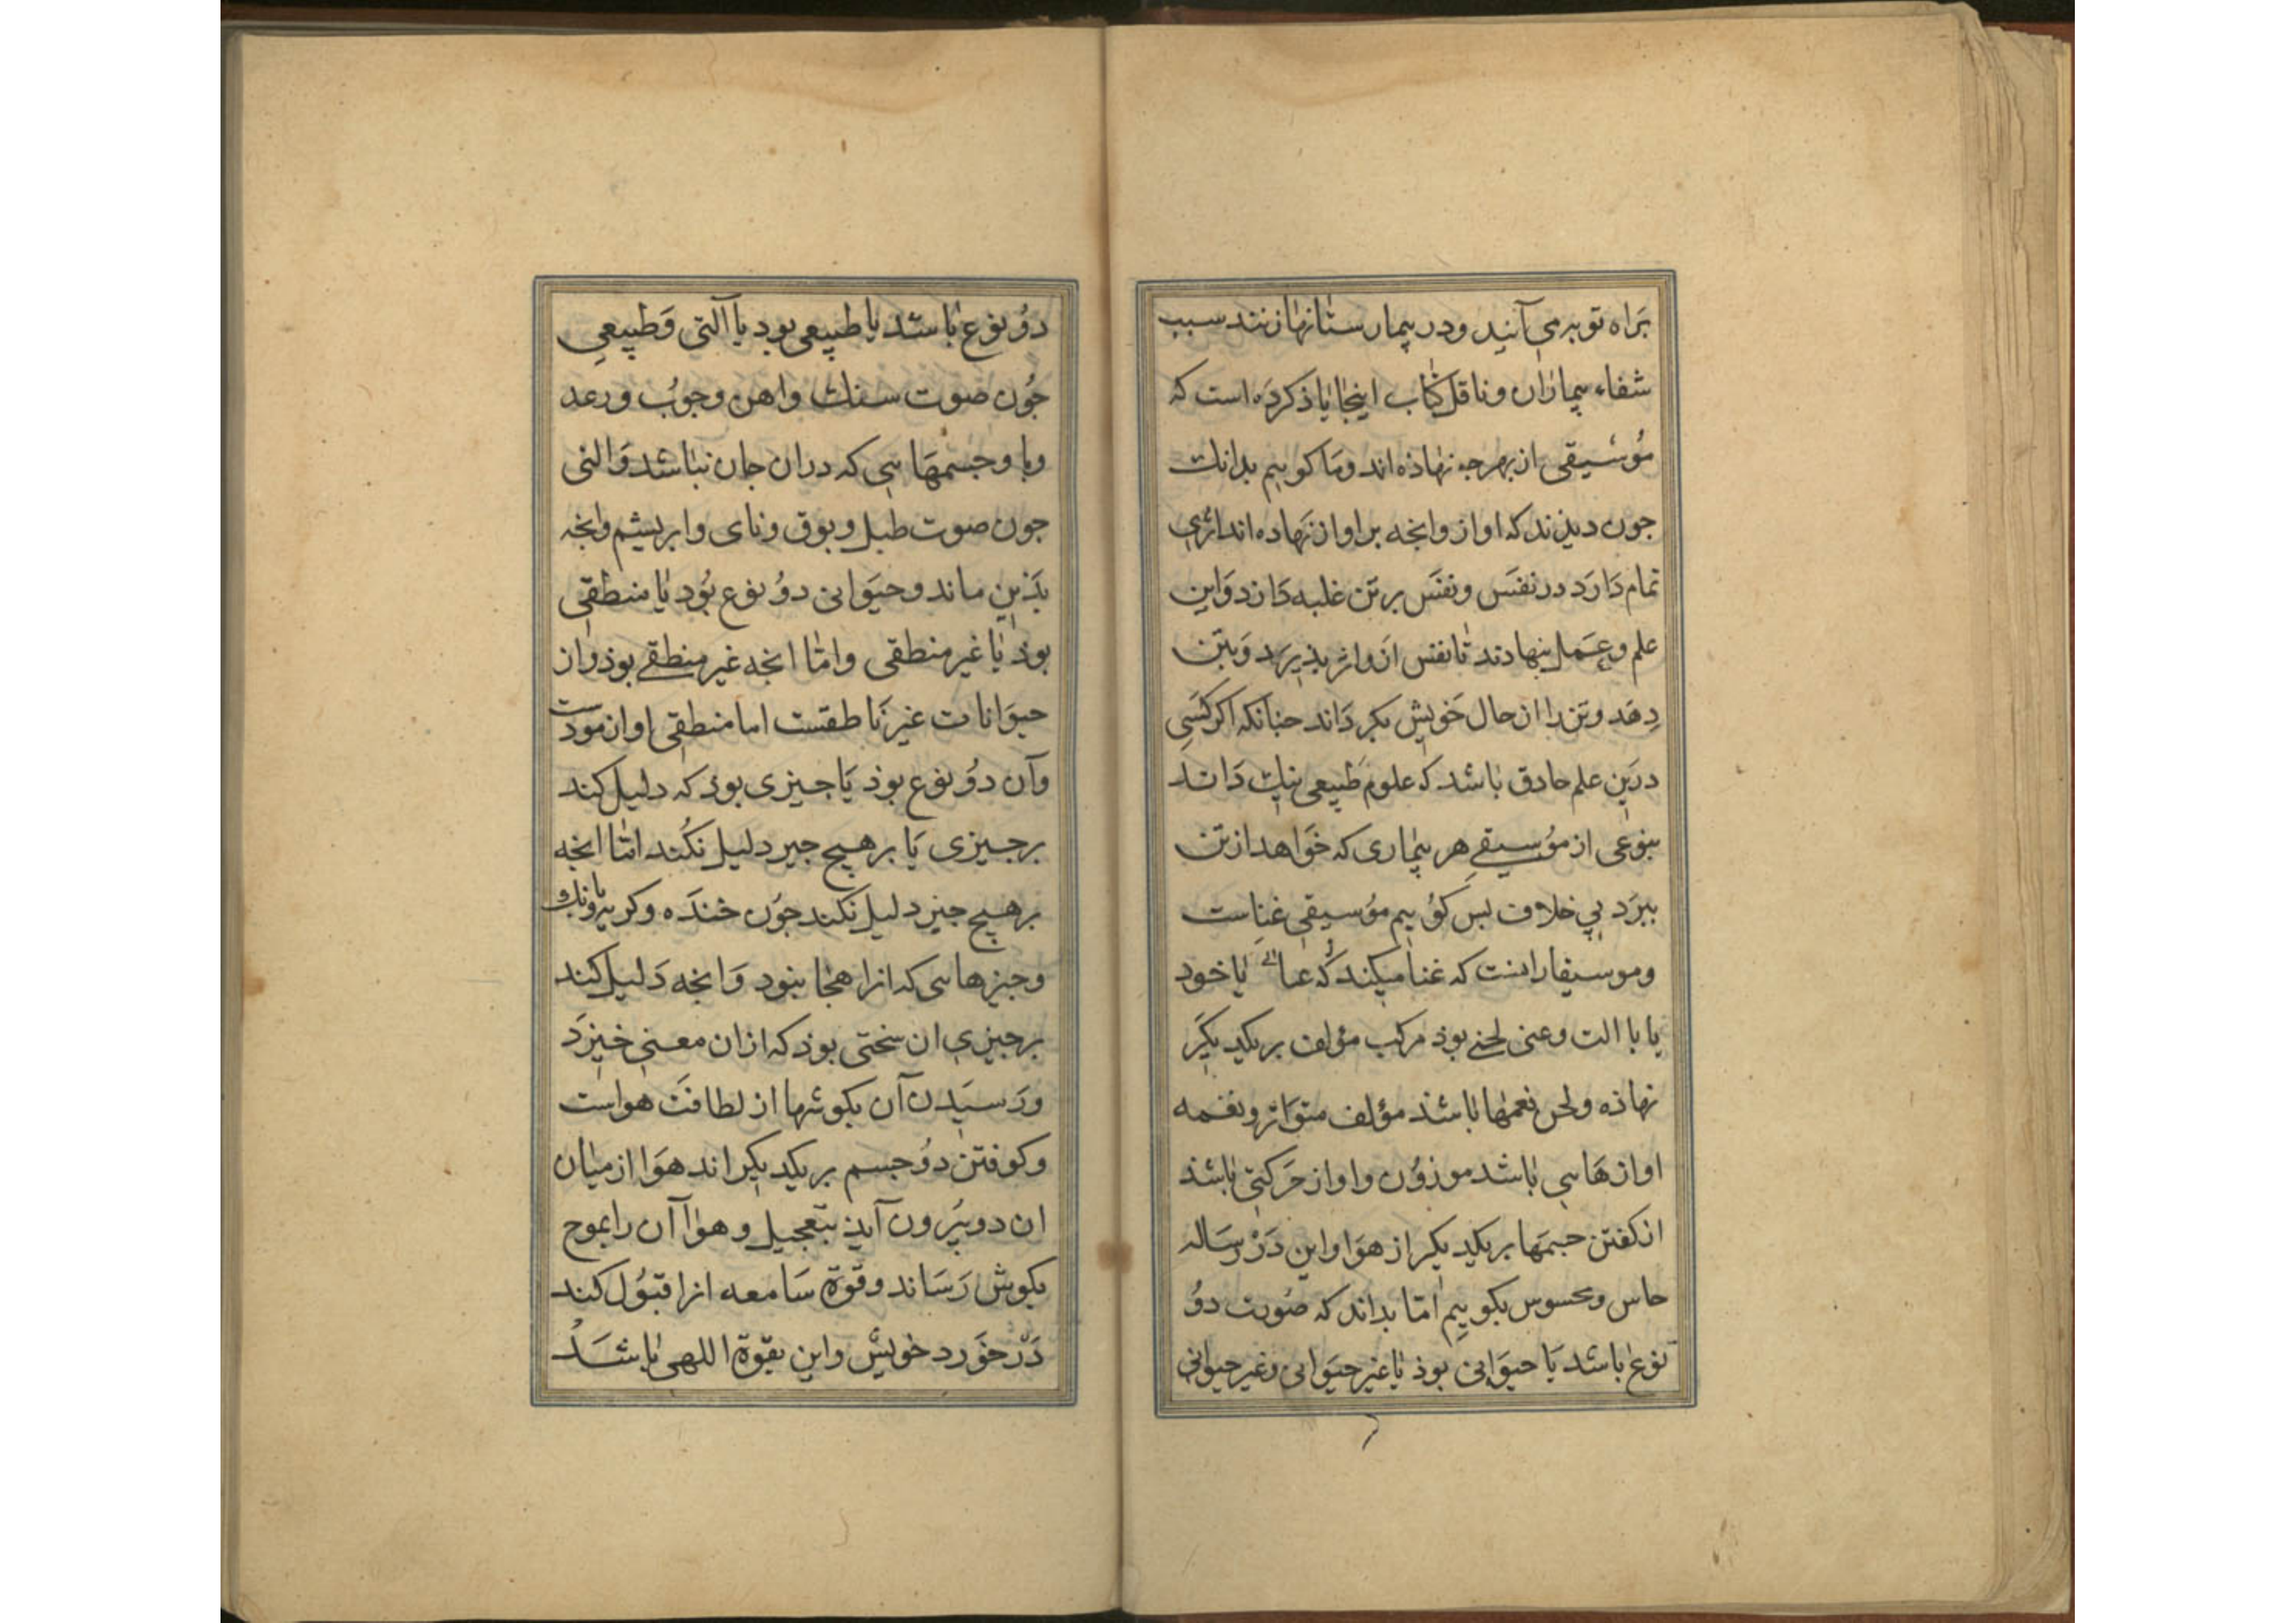 براه توبه می آیند و در بیمارستانها زنند سبب
شفاء بیماران و ناقل کتاب اینجا یاذ کرده است که
موسیقی از بهر جه نهاذه اند و ما کوییم بدانک
جون دیذند که اواز وانجه بر اواز نهاده اند اثری
تمام دارد در نفس و نفس بر تن غلبه دارد و این
علم و عمل بنهادند تا نفس از و اثر بذیرد و بتن
دهد و تن را از حال خویش بکرداند جنانکه اکر کسی
درین علم حادق باشد که علوم طبیعی نیک داند
بنوعی از موسیقی هر بیماری که خواهد از تن
ببرد بی خلاف بس کوییم موسیقی غناست
و موسیقار انست که غنا میکند یا خود
یا با الت و غنی لحنی بوذ مرکب مؤلف بر یکدیکر
نهاذه و لحن نغمها باشذ مؤلف متواتر و نغمه
اوازهایی باشد موزون و اواز حرکتی باشذ
از کفتن جسمها بر یکدیکر از هوا و این در رساله
حاس و محسوس بکوییم اما بداند که صوت دو
نوع باشد یا حیوانی بوذ یا غیر حیوانی و غیر حیوانی
دو نوع باشد یا طبیعی بود یا آلتی و طبیعی
جون صوت سنک و اهن و جوب و رعد
و با و جسمهایی که دران جان نباشد و التی
جون صوت طبل و بوق و نای و ابریشم وانجه
بذین ماند و حیوانی دو نوع بود یا منطقی
بوذ یا غیر منطقی و اما انجه غیر منطقی بوذ و از
حیوانات غیر ناطقست اما منطقی اواز مودست
وآن دو نوع بوذ یا جیزی بوذ که دلیل کند
بر جیزی یا بر هیج جیز دلیل نکند اما انجه
بر هیج جیز دلیل نکند جون خنده و کریه و بانک و
و جیزهایی که انرا هجا نبود و انجه دلیل کند
بر جیزی ان سختی بوذ که ازان معنی خیزد
و رسیدن آن بکوشها از لطافت هواست
و کوفتن دو جسم بر یکدیکر اند هوا از میان
ان دو بیرون آید بتعجیل و هوا آن را بموج
بکوش رساند و قوة سامعه انرا قبول کند
در خورد خویش و این بقوة اللهی باشد